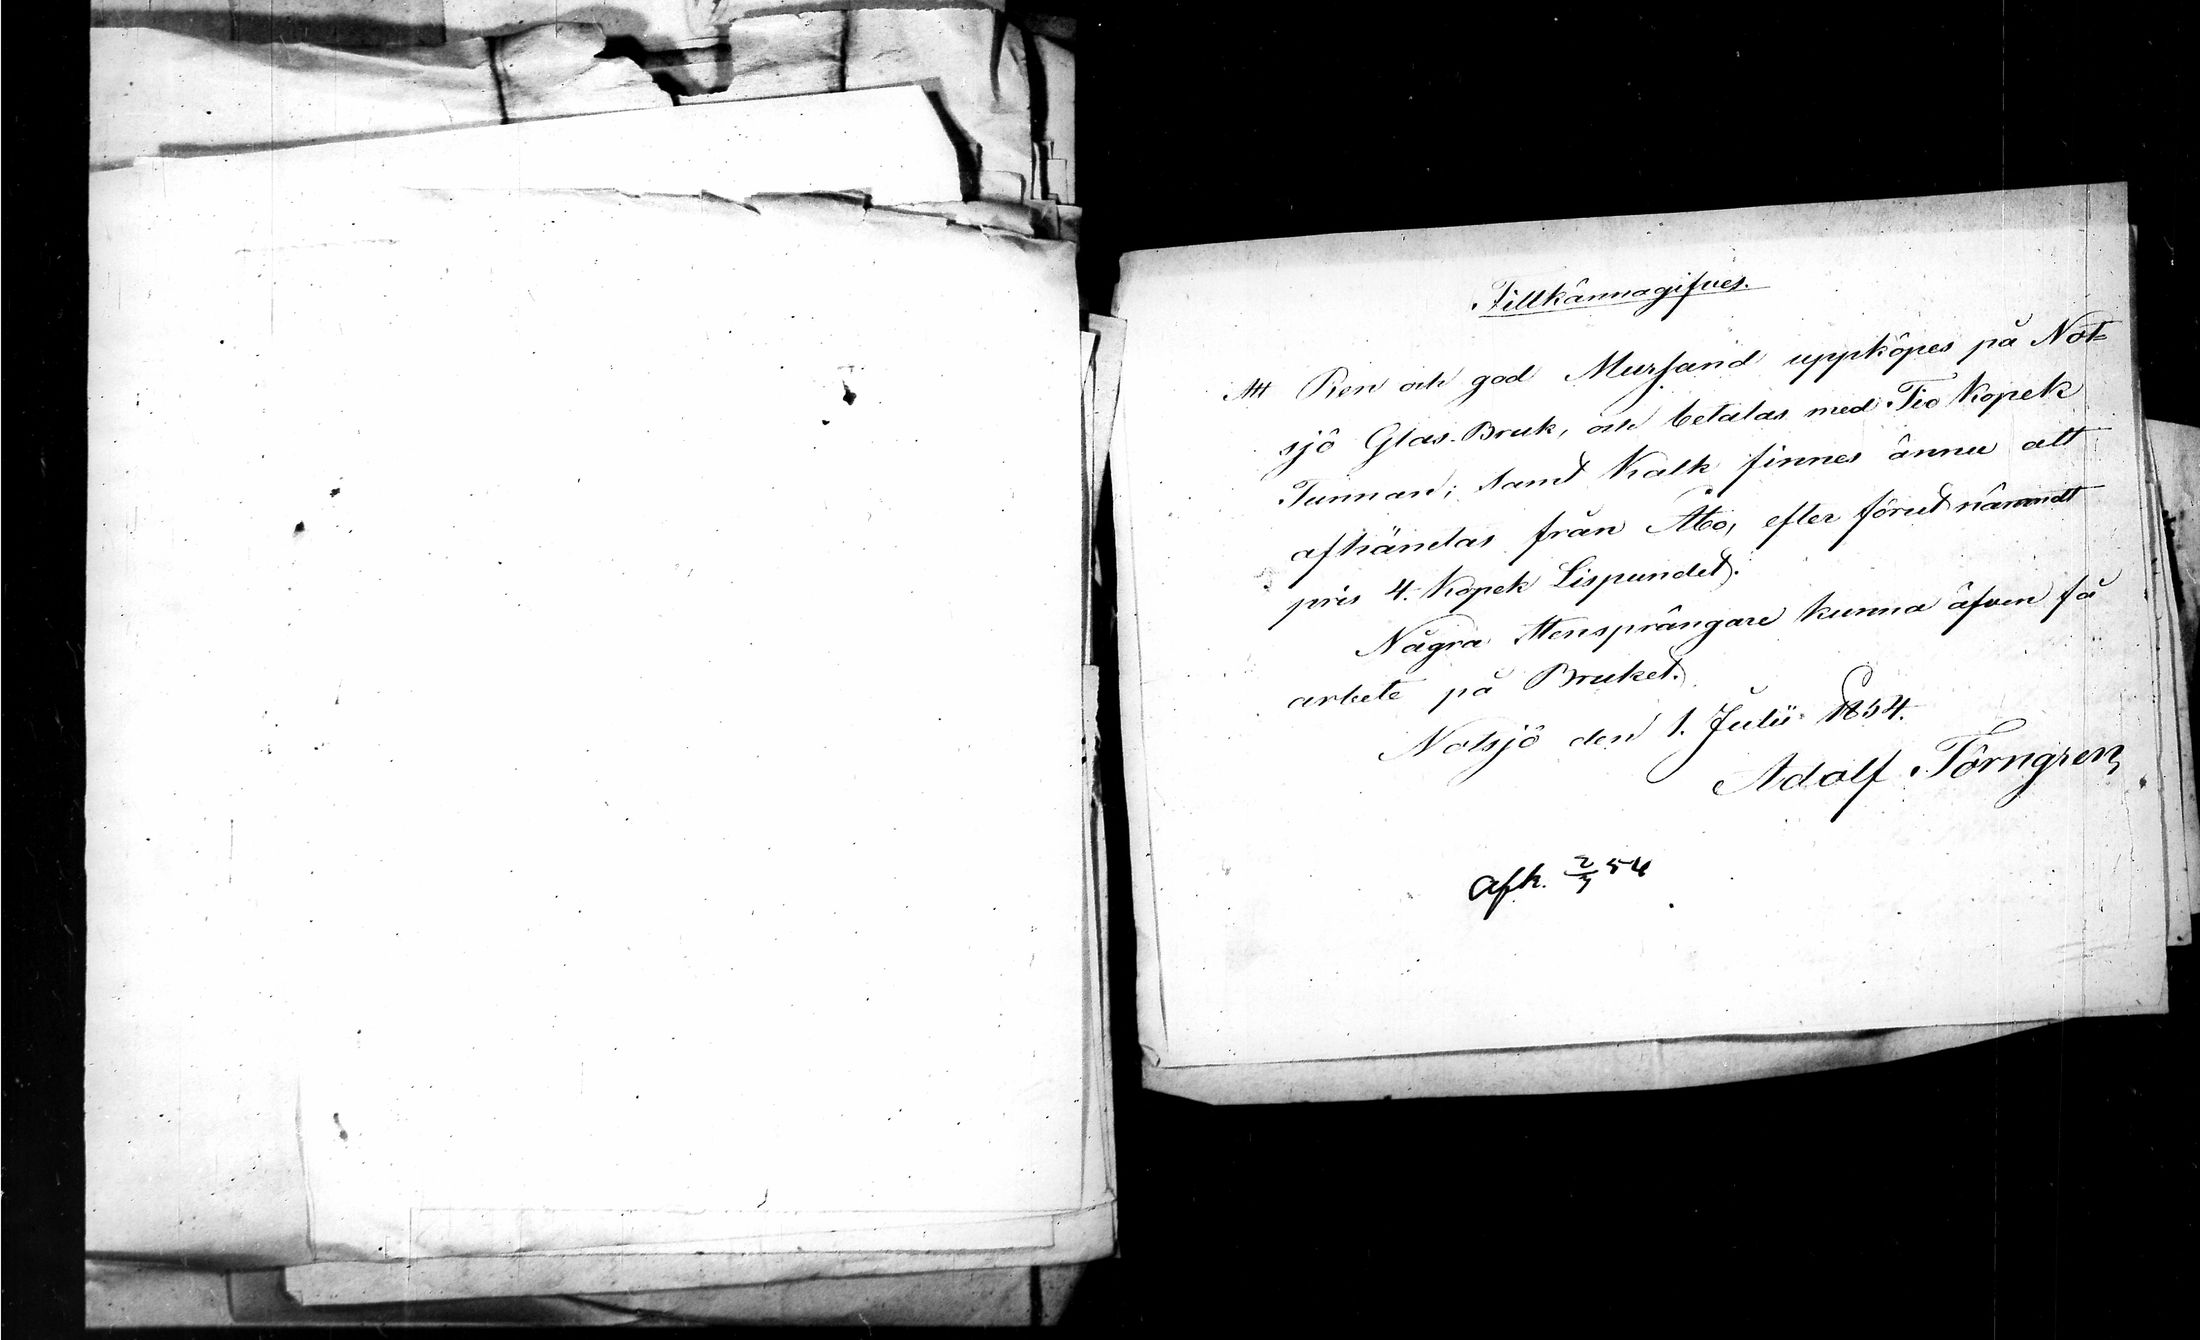 Tillkännagifves.
Att Ren och god Mursand uppköpes på Not=
sjö Glas-Bruk, och betalas med Tio Kopek
Tunnan; samt Kalk finnes ännu att
afhämtas från Åbo, efter förut nämndt
pris 4. Kopek Lispundet.
Några Stensprängare kunna äfven få
arbete på Bruket.
Notsjö den 1. Julii 1854.
Adolf Törngren
Afk. 2/7 54